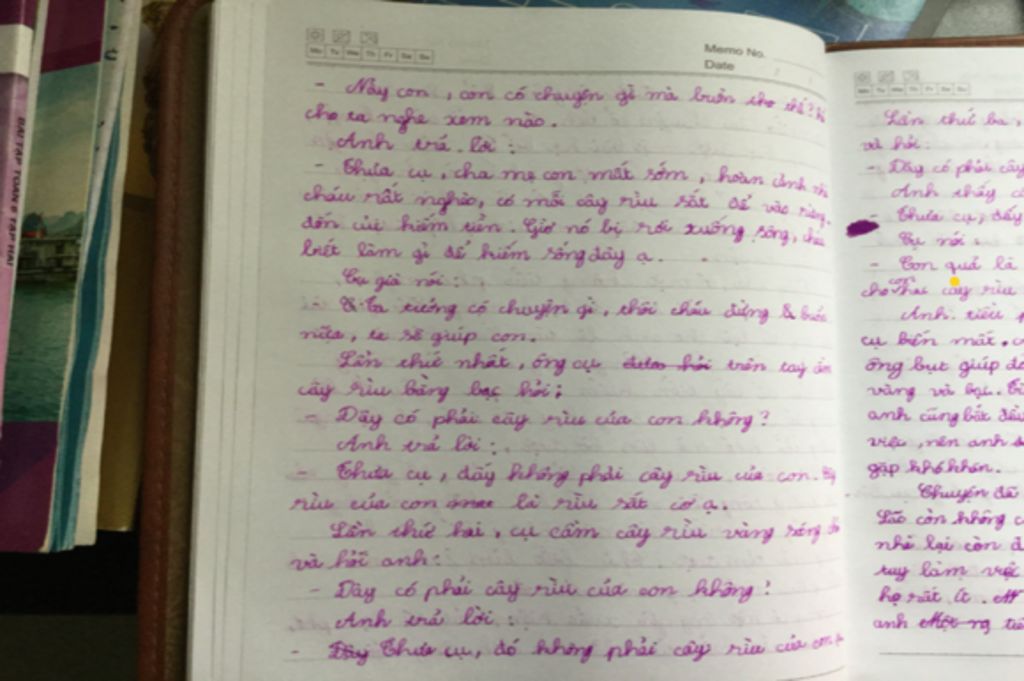 BÀI TẬP TOÁN 6 TẬP HAI
Mo Tu We Th Fr Sa Su
Memo No.
Date
- Này con, con có chuyện gì mà buồn cho thế?
cho ta nghe xem nào.
Anh trả lời :
- Thưa cụ, cha mẹ con mất sớm, hoàn cảnh nhà
cháu rất nghèo, có mỗi cây rìu sắt để vào rừng
đốn củi kiếm tiền. Giờ nó bị rơi xuống sông, cháu
biết làm gì để kiếm sống đây ạ.
Cụ già nói :
Ta tưởng có chuyện gì, thôi cháu đừng buồn
nữa, ta sẽ giúp con.
Lần thứ nhất, ông cụ trên tay
cây rìu bằng bạc hỏi :
- Đây có phải cây rìu của con không?
Anh trả lời :
- Thưa cụ, đấy không phải cây rìu của con.
rìu của con là rìu sắt cơ ạ.
Lần thứ hai, cụ cầm cây rìu vàng sáng
và hỏi anh :
- Đây có phải cây rìu của con không?
Anh trả lời :
- Đây Thưa cụ, đó không phải cây rìu của con
Mo Tu We Th Fr Sa Su
Lần thứ ba,
và hỏi :
- Đây có phải cây
Anh thấy
- Thưa cụ, đấy
Cụ nói :
- Con quả là
cho con hai cây rìu
Anh tiều
cụ biến mất.
ông bụt giúp
vàng và bạc.
anh cũng bắt đầu
việc, nên anh
gặp khó khăn.
Chuyện đã
Lão còn không
nhà lại còn
tuy làm việc
họ rất ít.
anh Một